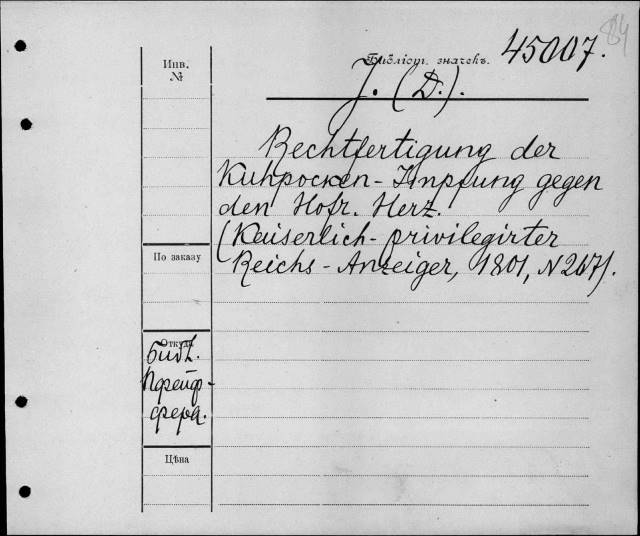 84
Инв.
№
Библіот. значекъ. 45007.
J. (D.).
Rechtfertigung der
Kuhpocken-Impfung gegen
den Hofr. Herz.
(Kaiserlich-privilegirter
Reichs-Anzeiger, 1801, N 247).
По заказу
Откуда
Библ.
Пфейф-
фера.
Цѣна